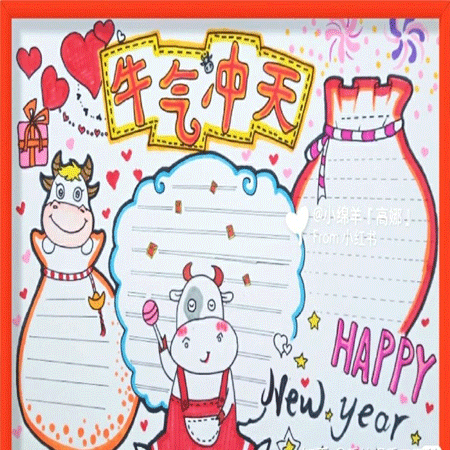 牛气冲天
@小绵羊「高娜」
From 小红书
HAPPY
New year